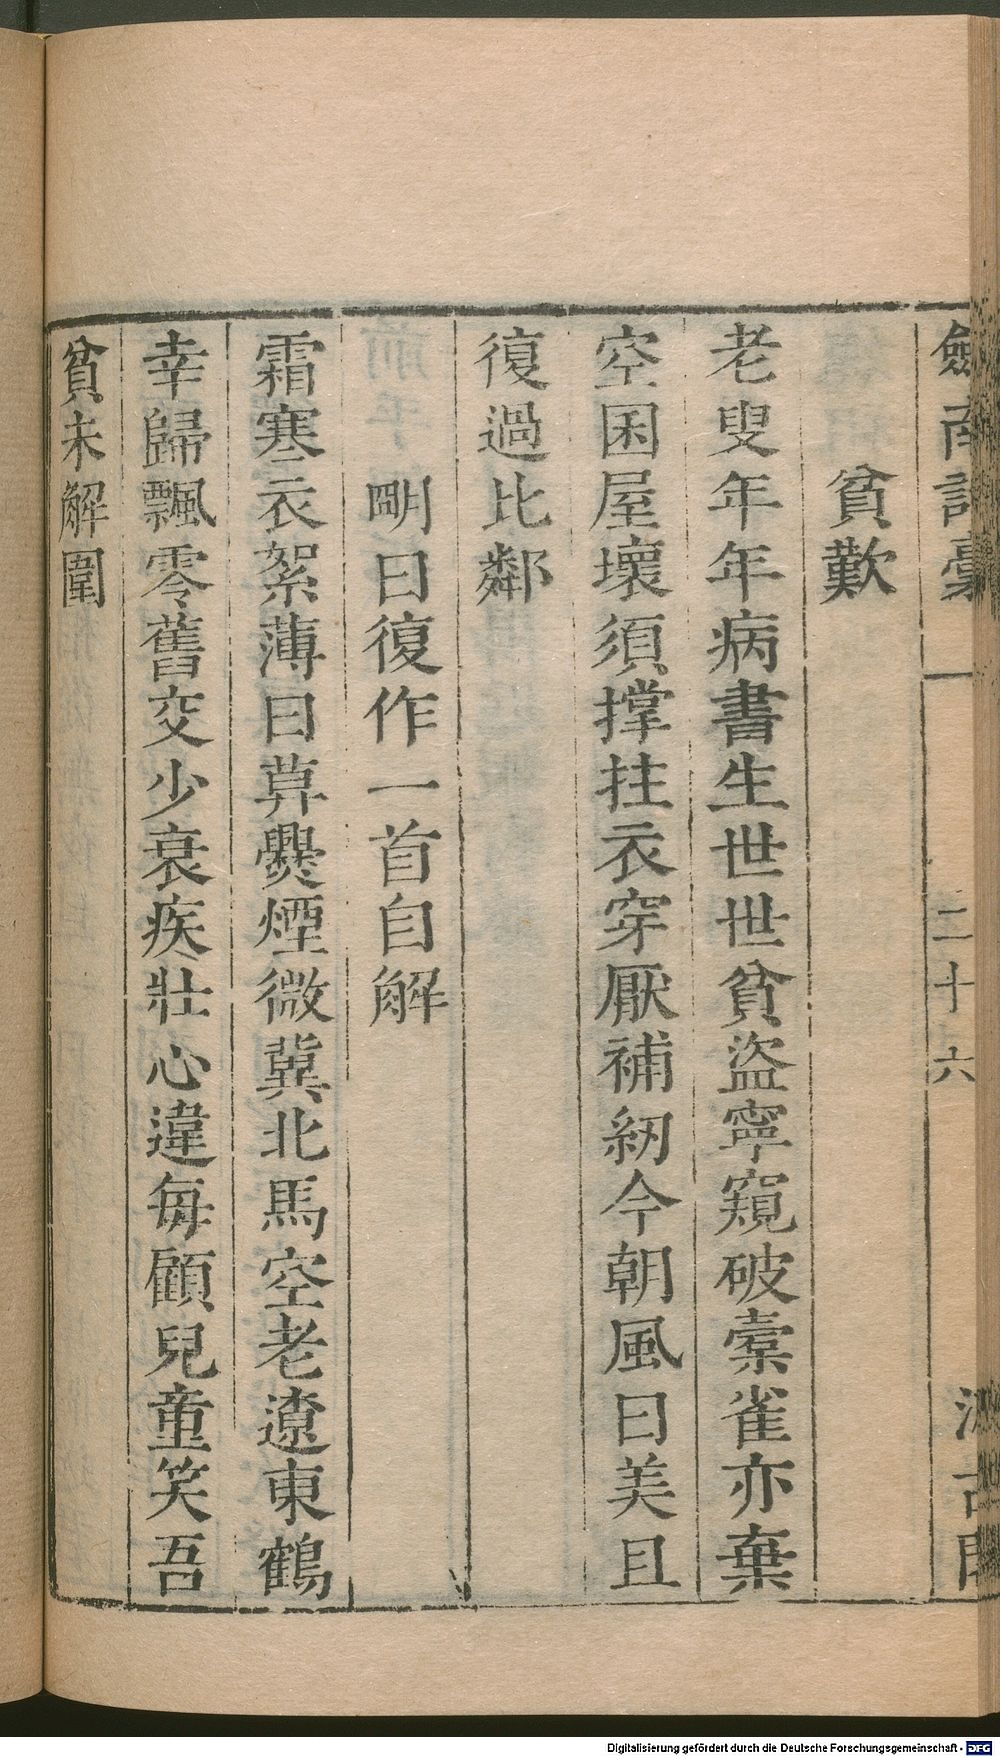 劒南詩稾 二十六 汲古閣
貧歎
老叟年年病書生世世貧盜寧窺破橐雀亦棄
空囷屋壞須撑拄衣穿厭補紉今朝風日美且
復過比鄰
明日復作一首自解
霜寒衣絮薄日莫爨煙微冀北馬空老遼東鶴
幸歸飄零舊交少衰疾壯心違每顧兒童笑吾
貧未解圍
Digitalisierung gefördert durch die Deutsche Forschungsgemeinschaft - DFG